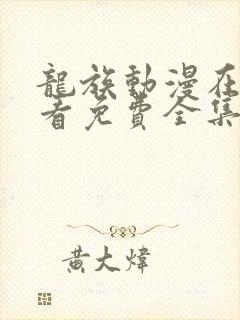 龍族動漫在
看免費全集
黃大煒